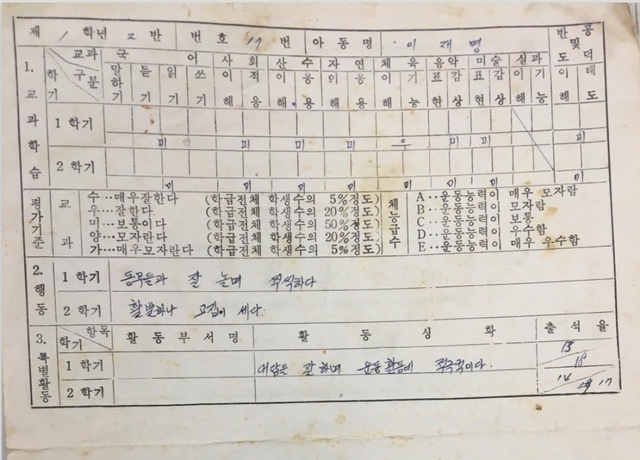 제 1 학년 2 반 번호 17 번 아동명 이재명 반공 및 도덕
교과 국어 사회 산수 자연 체육 음악 미술 실과
학기 구분 말하기 듣기 읽기 쓰기 이해 적응 이해 응용 이해 응용 이해 기능 표현 감상 표현 감상 이해 기능 이해 태도
1. 교과학습
1학기 미 미 미 미 우 미 미 미
2학기 미 미 미 미 미 미 미 미
평가기준 교과
수…매우잘한다 (학급전체 학생수의 5%정도)
우…잘한다. (학급전체 학생수의 20%정도)
미…보통이다 (학급전체 학생수의 50%정도)
양…모자란다 (학급전체 학생수의 20%정도)
가…매우모자란다 (학급전체 학생수의 5%정도)
체능급수
A…운동능력이 매우 모자람
B…운동능력이 모자람
C…운동능력이 보통
D…운동능력이 우수함
E…운동능력이 매우 우수함
2. 행동
1학기 동무들과 잘 놀며 씩씩하다
2학기 활발하나 고집이 세다.
3. 특별활동
항목 학기 활동부서명 활동상황 출석율
1학기 대답을 잘 하며 운동 활동에 적극적이다.
2학기